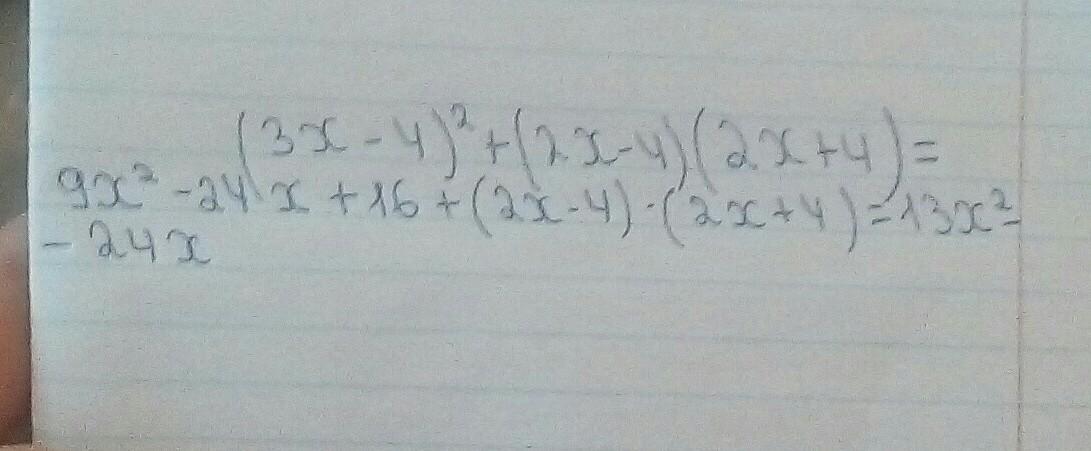 (3x-4)²+(2x-4)(2x+4)=
9x²-24x+16+(2x-4)·(2x+4)=13x²-
-24x